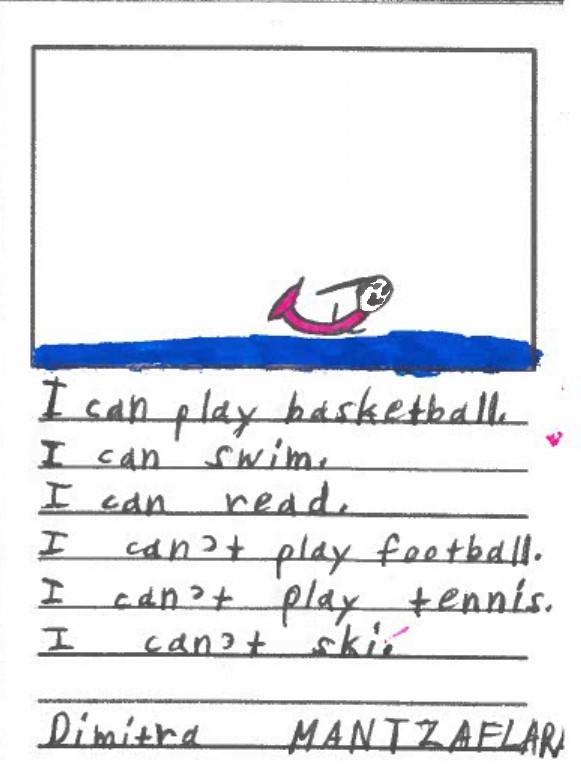 I can play basketball.
I can swim.
I can read.
I can't play football.
I can't play tennis.
I can't ski.
Dimitra MANTZAFLARA